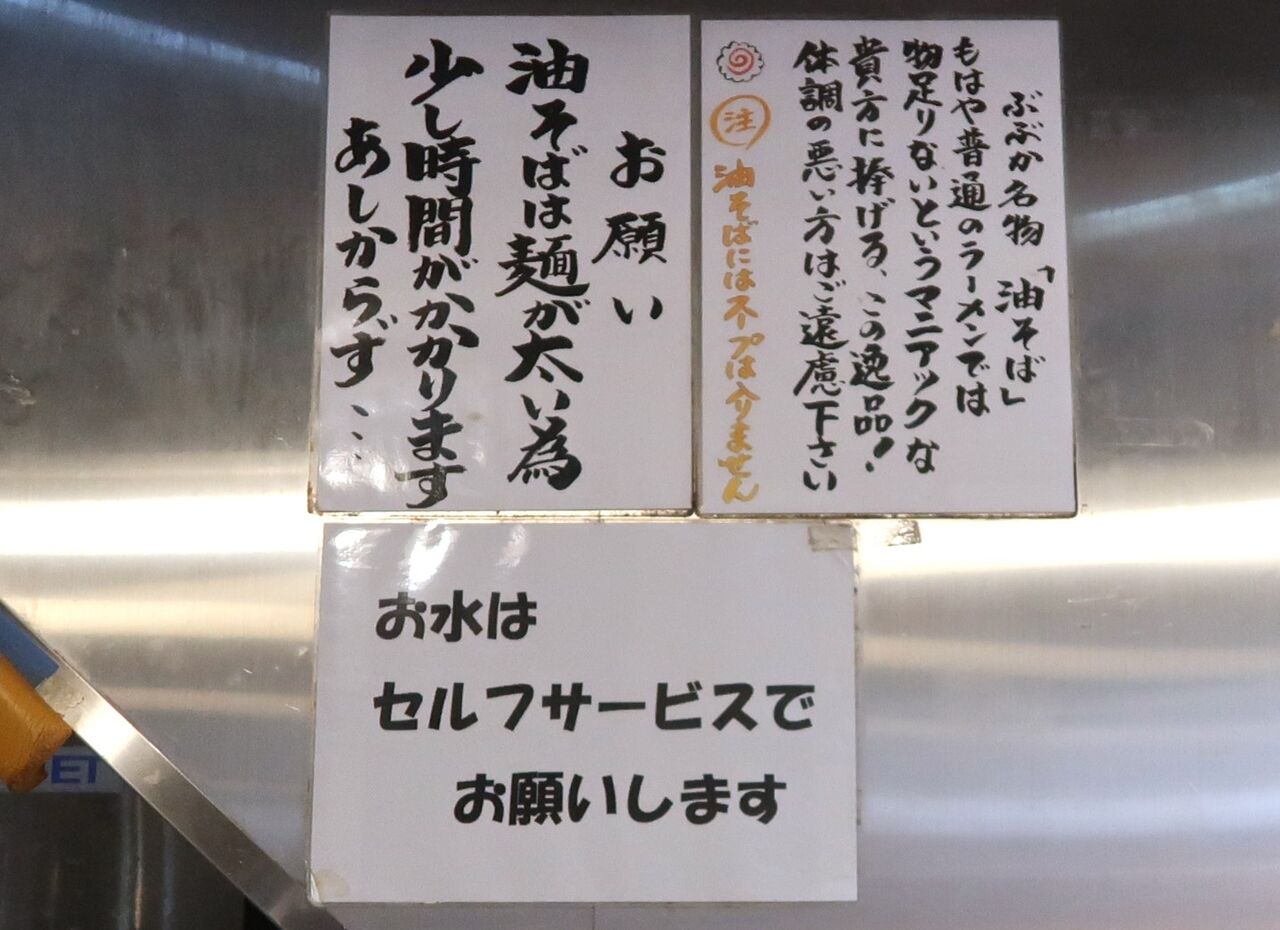 ぶぶか名物「油そば」
もはや普通のラーメンでは
物足りないというマニアックな
貴方に捧げる、この逸品!
体調の悪い方はご遠慮下さい
注 油そばにはスープは入りません
お願い
油そばは麺が太い為
少し時間がかかります
あしからず…
お水は
セルフサービスで
お願いします